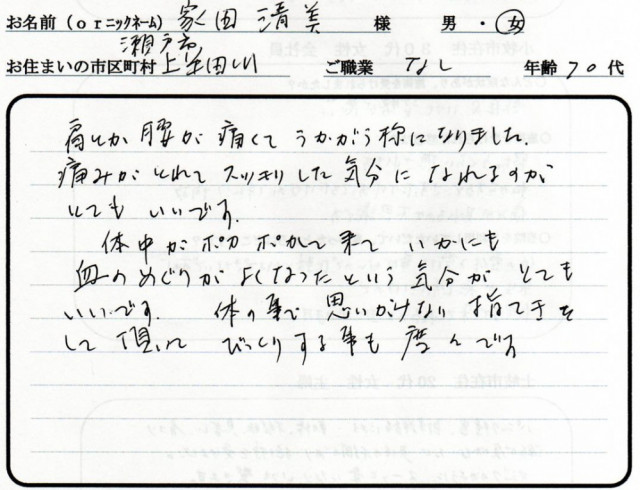 お名前（orニックネーム） 家田 清美 様 男・女
瀬戸市
お住まいの市区町村 上半田川 ご職業 なし 年齢 70 代
肩とか腰が痛くてうかがう様になりました。
痛みがとれてスッキリした気分になれるのが
とてもいいです。
体中がポカポカして来ていかにも
血のめぐりがよくなったという気分がとても
いいです。 体の事で思いがけない指てきを
して頂いてびっくりする事も度々です